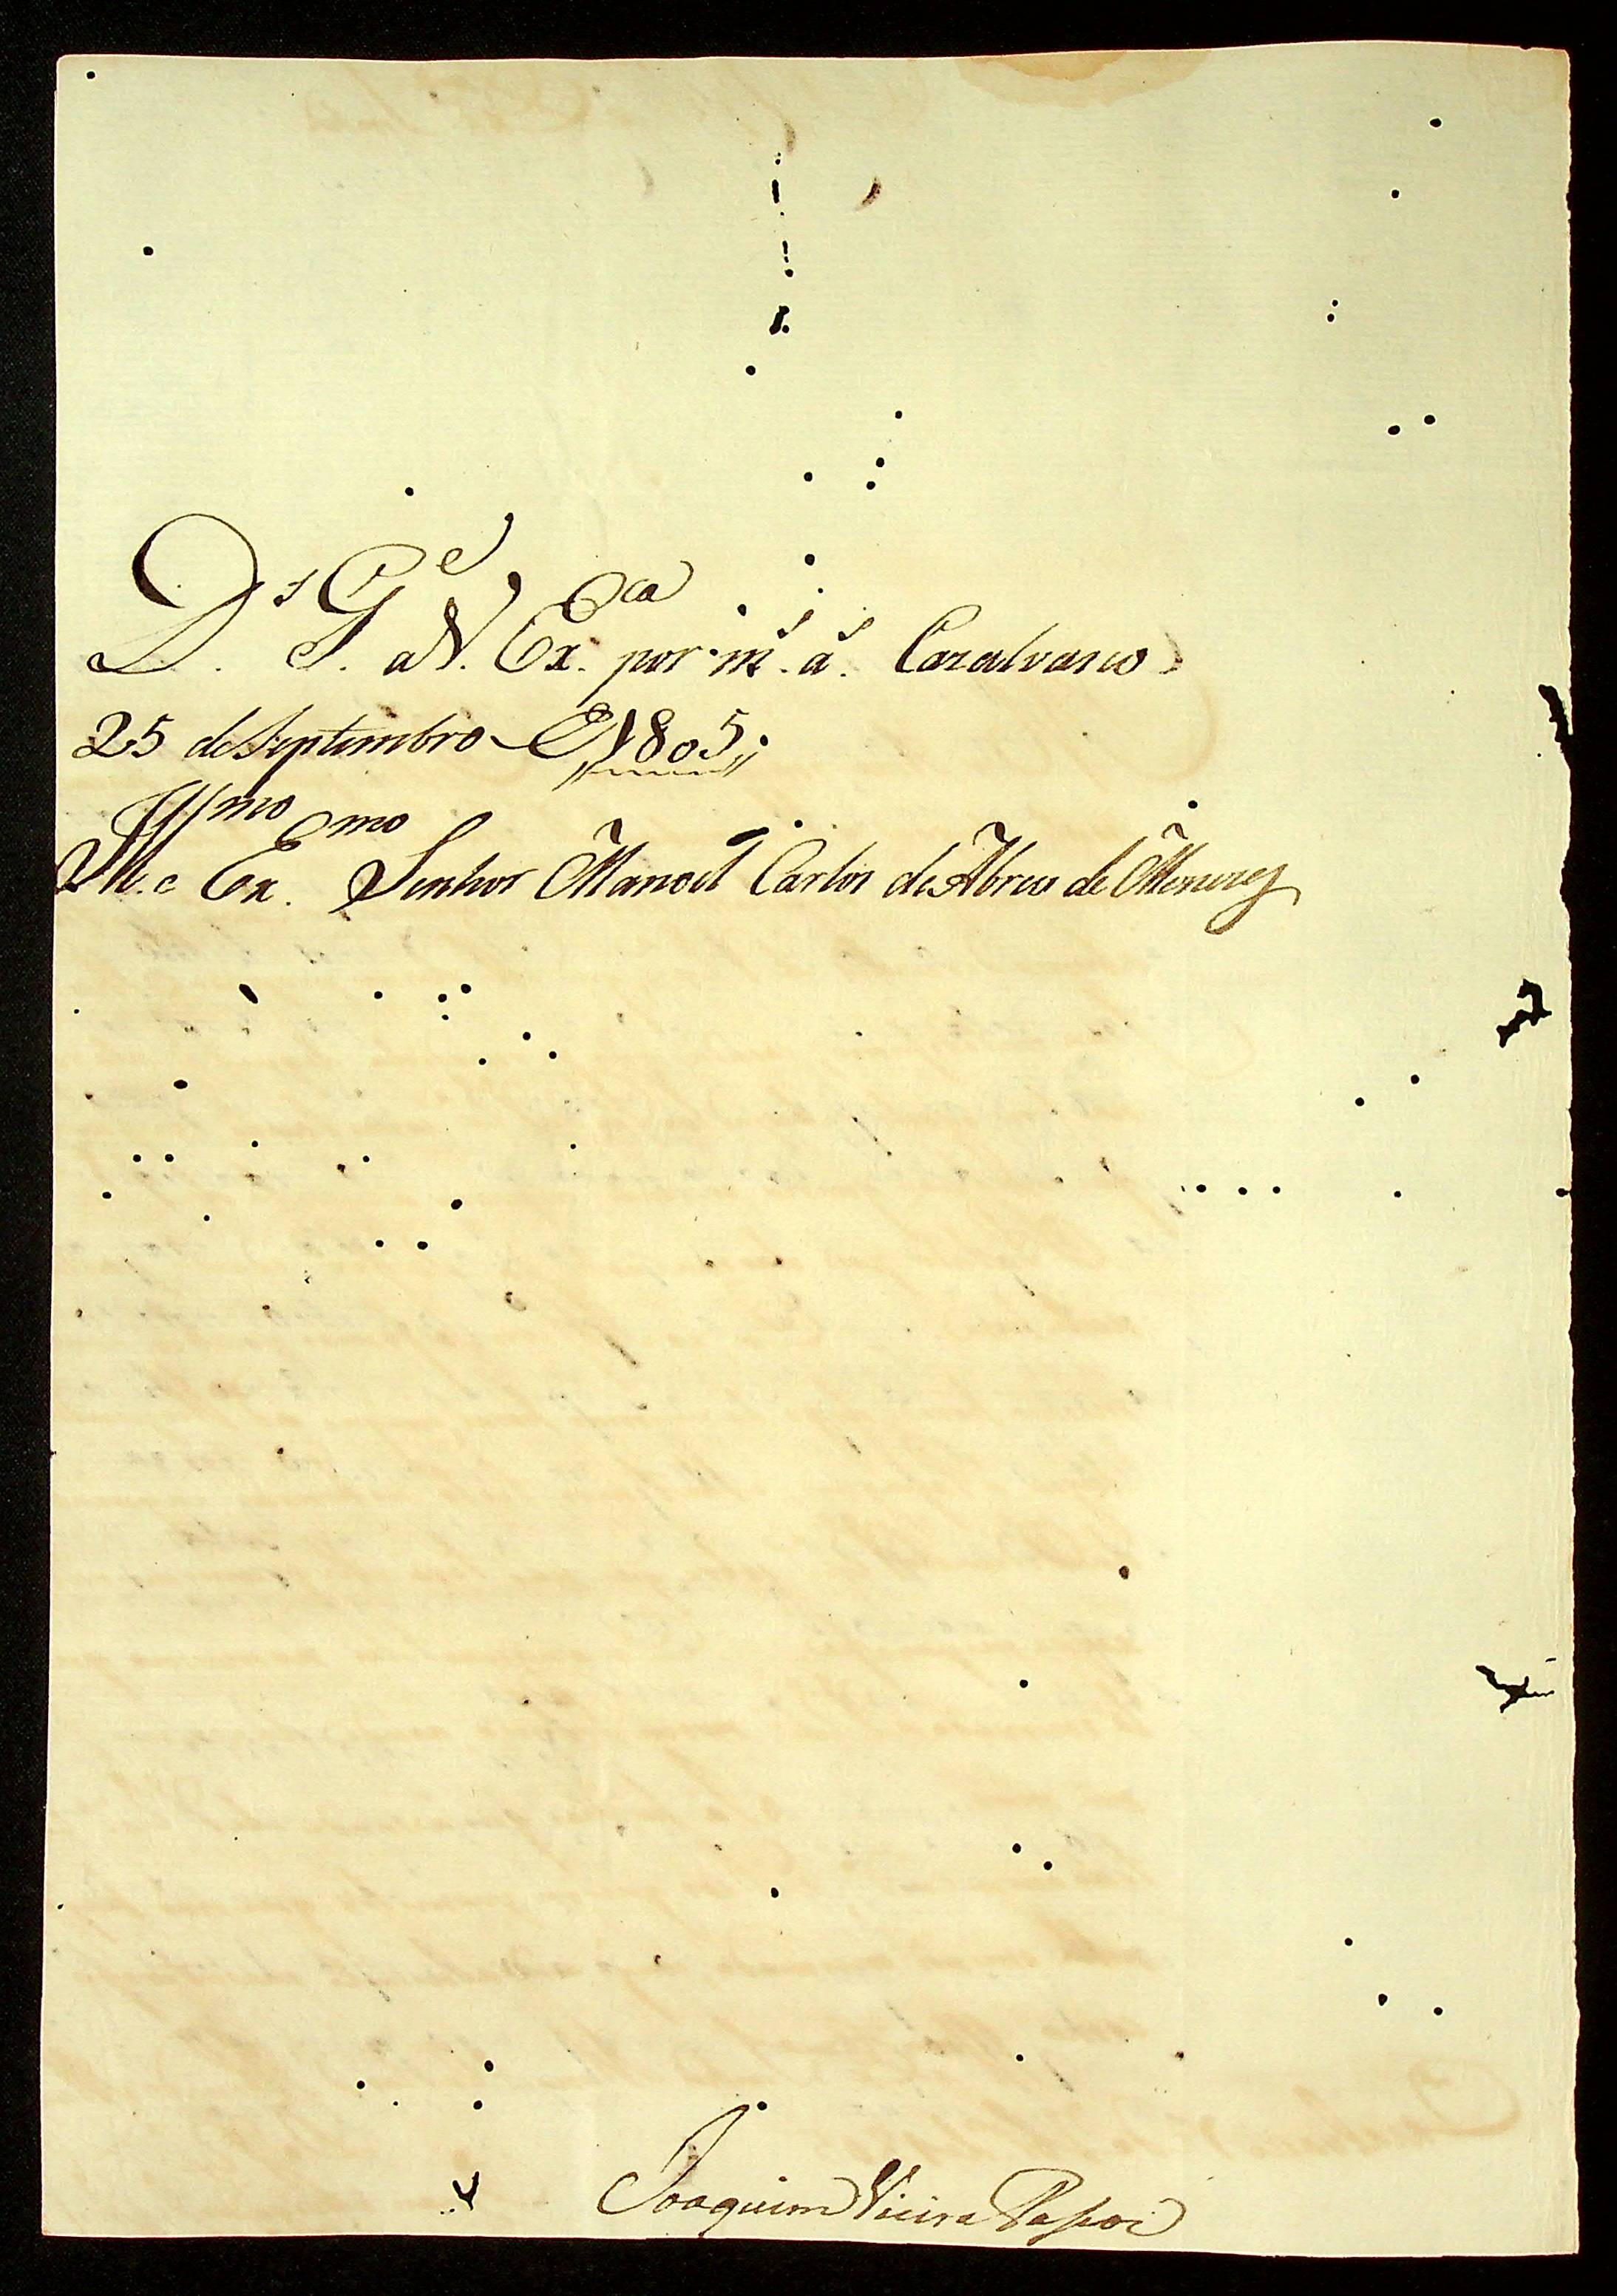 D.s G.e a V. Ex.ca por m.s a.s Cazalvasco
25 de Septembro E 1805,,
Ill.mo e Ex.mo Senhor Manoel Carlos de Abreu de Menezes
Joaquim Vieira Passos